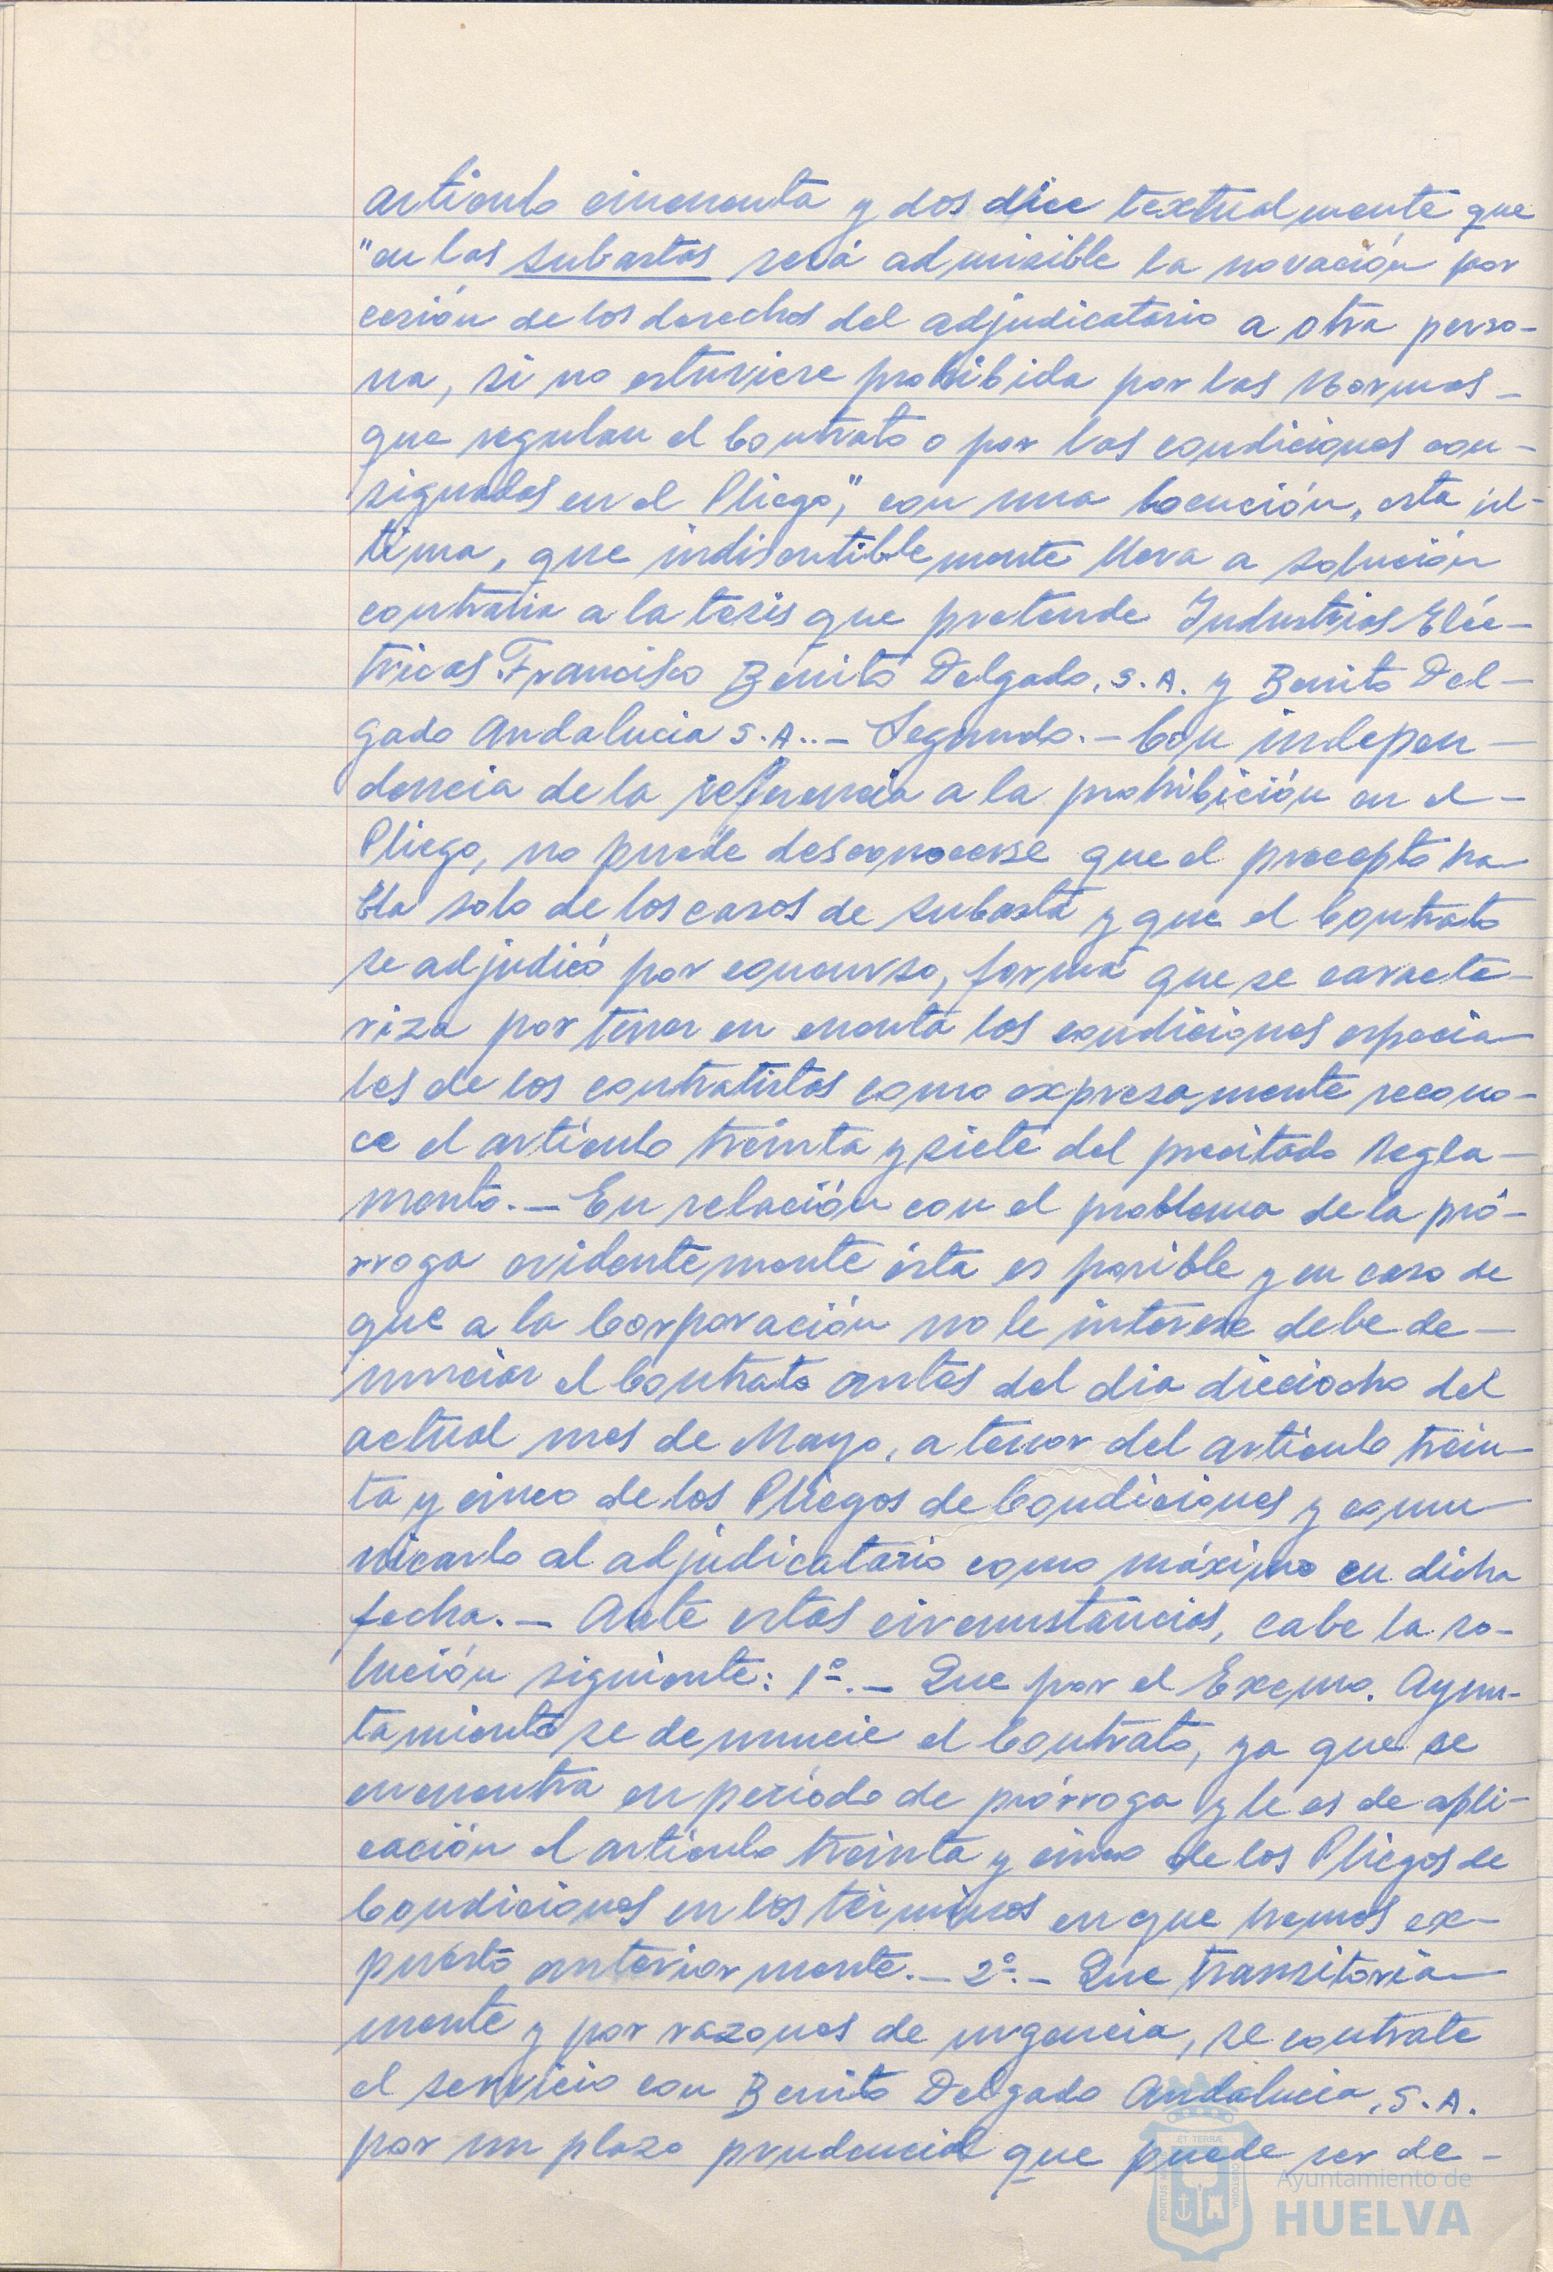 artículo cincuenta y dos dice textualmente que
"en las subastas será admisible la novación por
cesión de los derechos del adjudicatario a otra perso-
na, si no estuviere prohibida por las Normas -
que regulan el Contrato o por las condiciones con-
signadas en el Pliego", con una locución, esta úl-
tima, que indiscutiblemente lleva a solución
contraria a la tesis que pretende Industrias Eléc-
tricas Francisco Benito Delgado, S.A. y Benito Del-
gado Andalucia S.A.. - Segundo. - Con indepen-
dencia de la referencia a la prohibición en el -
Pliego, no puede desconocerse que el precepto ha-
bla solo de los casos de subasta y que el Contrato
se adjudicó por concurso, forma que se caracte-
riza por tener en cuenta las condiciones especia-
les de los contratistas como expresamente recono-
ce el artículo treinta y siete del precitado Regla-
mento. - En relación con el problema de la pró-
rroga evidentemente ésta es posible y en caso de
que a la Corporación no le interese debe de -
nunciar el Contrato antes del dia dieciocho del
actual mes de Mayo, a tenor del artículo trein-
ta y cinco de los Pliegos de Condiciones y comu-
nicarlo al adjudicatario como máximo en dicha
fecha. - Ante estas circunstancias, cabe la so-
lución siguiente: 1º. - Que por el Excmo. Ayun-
tamiento se denuncie el Contrato, ya que se
encuentra en período de prórroga y le es de apli-
cación el artículo treinta y cinco de los Pliegos de
Condiciones en los términos en que hemos ex-
puesto anteriormente. - 2º. - Que transitoria-
mente y por razones de urgencia, se contrate
el servicio con Benito Delgado Andalucia, S.A.
por un plazo prudencial que puede ser de -
ET TERRÆ
PORTUS
CUSTODIA
Ayuntamiento de
HUELVA